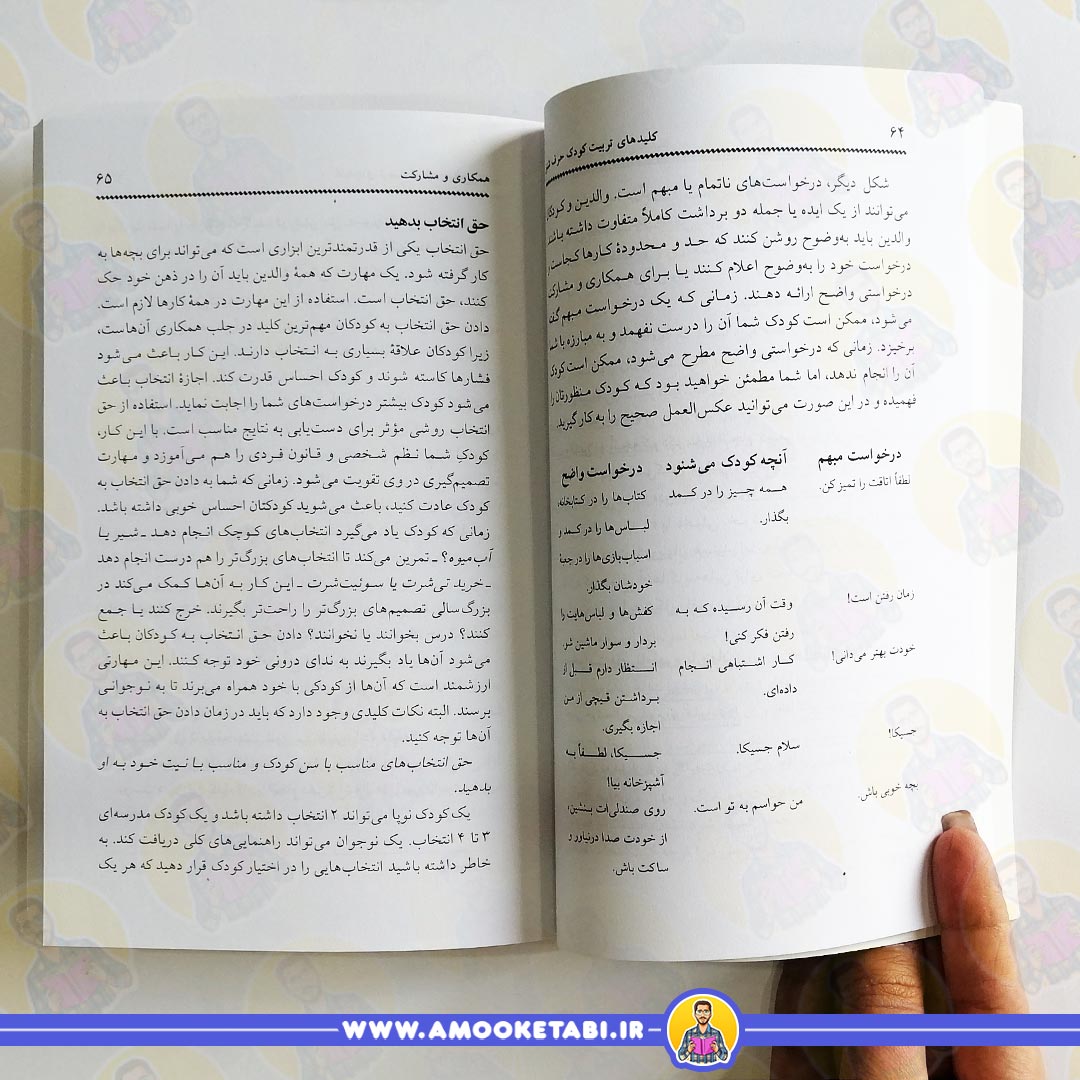 ۶۴
کلیدهای تربیت کودک حرف
شکل دیگر، درخواست‌های ناتمام یا مبهم است. والدین و کودکان
می‌توانند از یک ایده یا جمله دو برداشت کاملاً متفاوت داشته باشند
والدین باید به‌وضوح روشن کنند که حد و محدودهٔ کارها کجاست و
درخواست خود را به‌وضوح اعلام کنند یا برای همکاری و مشارکت
درخواستی واضح ارائه دهند. زمانی که یک درخواست مبهم گفته
می‌شود، ممکن است کودک شما آن را درست نفهمد و به مبارزه با شما
برخیزد. زمانی که درخواستی واضح مطرح می‌شود، ممکن است کودک
آن را انجام ندهد، اما شما مطمئن خواهید بود که کودک منظورتان را
فهمیده و در این صورت می‌توانید عکس‌العمل صحیح را به کار گیرید.
درخواست مبهم
آنچه کودک می‌شنود
درخواست واضح
لطفاً اتاقت را تمیز کن.
همه چیز را در کمد
بگذار.
کتاب‌ها را در کتابخانه،
لباس‌ها را در کمد و
اسباب‌بازی‌ها را در جعبهٔ
خودشان بگذار.
زمان رفتن است!
وقت آن رسیده که به
رفتن فکر کنی!
کفش‌ها و لباس‌هایت را
بردار و سوار ماشین شو.
خودت بهتر می‌دانی!
کار اشتباهی انجام
داده‌ای.
انتظار دارم قبل از
برداشتن قیچی از من
اجازه بگیری.
جسیکا!
سلام جسیکا.
جسیکا، لطفاً به
آشپزخانه بیا!
بچه خوبی باش.
من حواسم به تو است.
روی صندلی‌ات بنشین،
از خودت صدا درنیاور و
ساکت باش.
همکاری و مشارکت
۶۵
حق انتخاب بدهید
حق انتخاب یکی از قدرتمندترین ابزاری است که می‌تواند برای بچه‌ها به
کار گرفته شود. یک مهارت که همهٔ والدین باید آن را در ذهن خود حک
کنند، حق انتخاب است. استفاده از این مهارت در همهٔ کارها لازم است.
دادن حق انتخاب به کودکان مهم‌ترین کلید در جلب همکاری آن‌هاست،
زیرا کودکان علاقهٔ بسیاری به انتخاب دارند. این کار باعث می‌شود
فشارها کاسته شوند و کودک احساس قدرت کند. اجازهٔ انتخاب باعث
می‌شود کودک بیشتر درخواست‌های شما را اجابت نماید. استفاده از حق
انتخاب روشی مؤثر برای دست‌یابی به نتایج مناسب است. با این کار،
کودکِ شما نظم شخصی و قانون فردی را هم می‌آموزد و مهارت
تصمیم‌گیری در وی تقویت می‌شود. زمانی که شما به دادن حق انتخاب به
کودک عادت کنید، باعث می‌شوید کودکتان احساس خوبی داشته باشد.
زمانی که کودک یاد می‌گیرد انتخاب‌های کوچک انجام دهد ـ شیر یا
آب‌میوه؟ ـ تمرین می‌کند تا انتخاب‌های بزرگ‌تر را هم درست انجام دهد
ـ خرید تی‌شرت یا سوئیت‌شرت ـ این کار به آن‌ها کمک می‌کند در
بزرگ‌سالی تصمیم‌های بزرگ‌تر را راحت‌تر بگیرند. خرج کنند یا جمع
کنند؟ درس بخوانند یا نخوانند؟ دادن حق انتخاب به کودکان باعث
می‌شود آن‌ها یاد بگیرند به ندای درونی خود توجه کنند. این مهارتی
ارزشمند است که آن‌ها از کودکی با خود همراه می‌برند تا به نوجوانی
برسند. البته نکات کلیدی وجود دارد که باید در زمان دادن حق انتخاب به
آن‌ها توجه کنید.
حق انتخاب‌های مناسب با سن کودک و مناسب با نیت خود به او
بدهید.
یک کودک نوپا می‌تواند ۲ انتخاب داشته باشد و یک کودک مدرسه‌ای
۳ تا ۴ انتخاب. یک نوجوان می‌تواند راهنمایی‌های کلی دریافت کند. به
خاطر داشته باشید انتخاب‌هایی را در اختیار کودک قرار دهید که هر یک
WWW.AMOOKETABI.IR